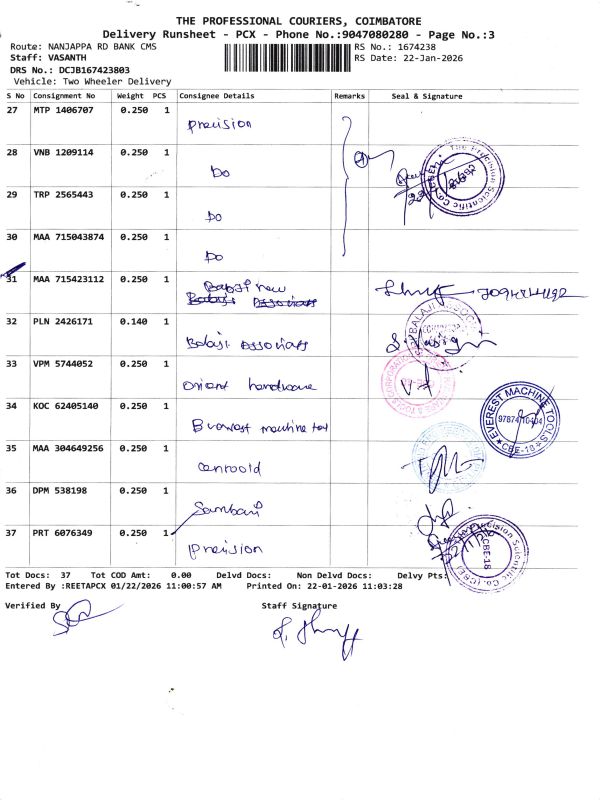 THE PROFESSIONAL COURIERS, COIMBATORE
Delivery Runsheet - PCX - Phone No.:9047080280 - Page No.:3
Route: NANJAPPA RD BANK CMS
RS No.: 1674238
Staff: VASANTH
RS Date: 22-Jan-2026
DRS No.: DCJB167423803
Vehicle: Two Wheeler Delivery
S No Consignment No Weight PCS Consignee Details Remarks Seal & Signature
27 MTP 1406707 0.250 1
Precision
28 VNB 1209114 0.250 1
Do
29 TRP 2565443 0.250 1
Do
30 MAA 715043874 0.250 1
Do
31 MAA 715423112 0.250 1
Balaji new
32 PLN 2426171 0.140 1
Balaji Associats
33 VPM 5744052 0.250 1
Orient hardware
34 KOC 62405140 0.250 1
EVEREST MACHINE TOOLS
97874 10404
CBE-18
35 MAA 304649256 0.250 1
36 DPM 538198 0.250 1
37 PRT 6076349 0.250 1
Precision
The Precision Scientific Co. (CBE)
CBE-18
Tot Docs: 37 Tot COD Amt: 0.00 Delvd Docs: Non Delvd Docs: Delvy Pts:
Entered By :REETAPCX 01/22/2026 11:00:57 AM Printed On: 22-01-2026 11:03:28
Verified By
Staff Signature